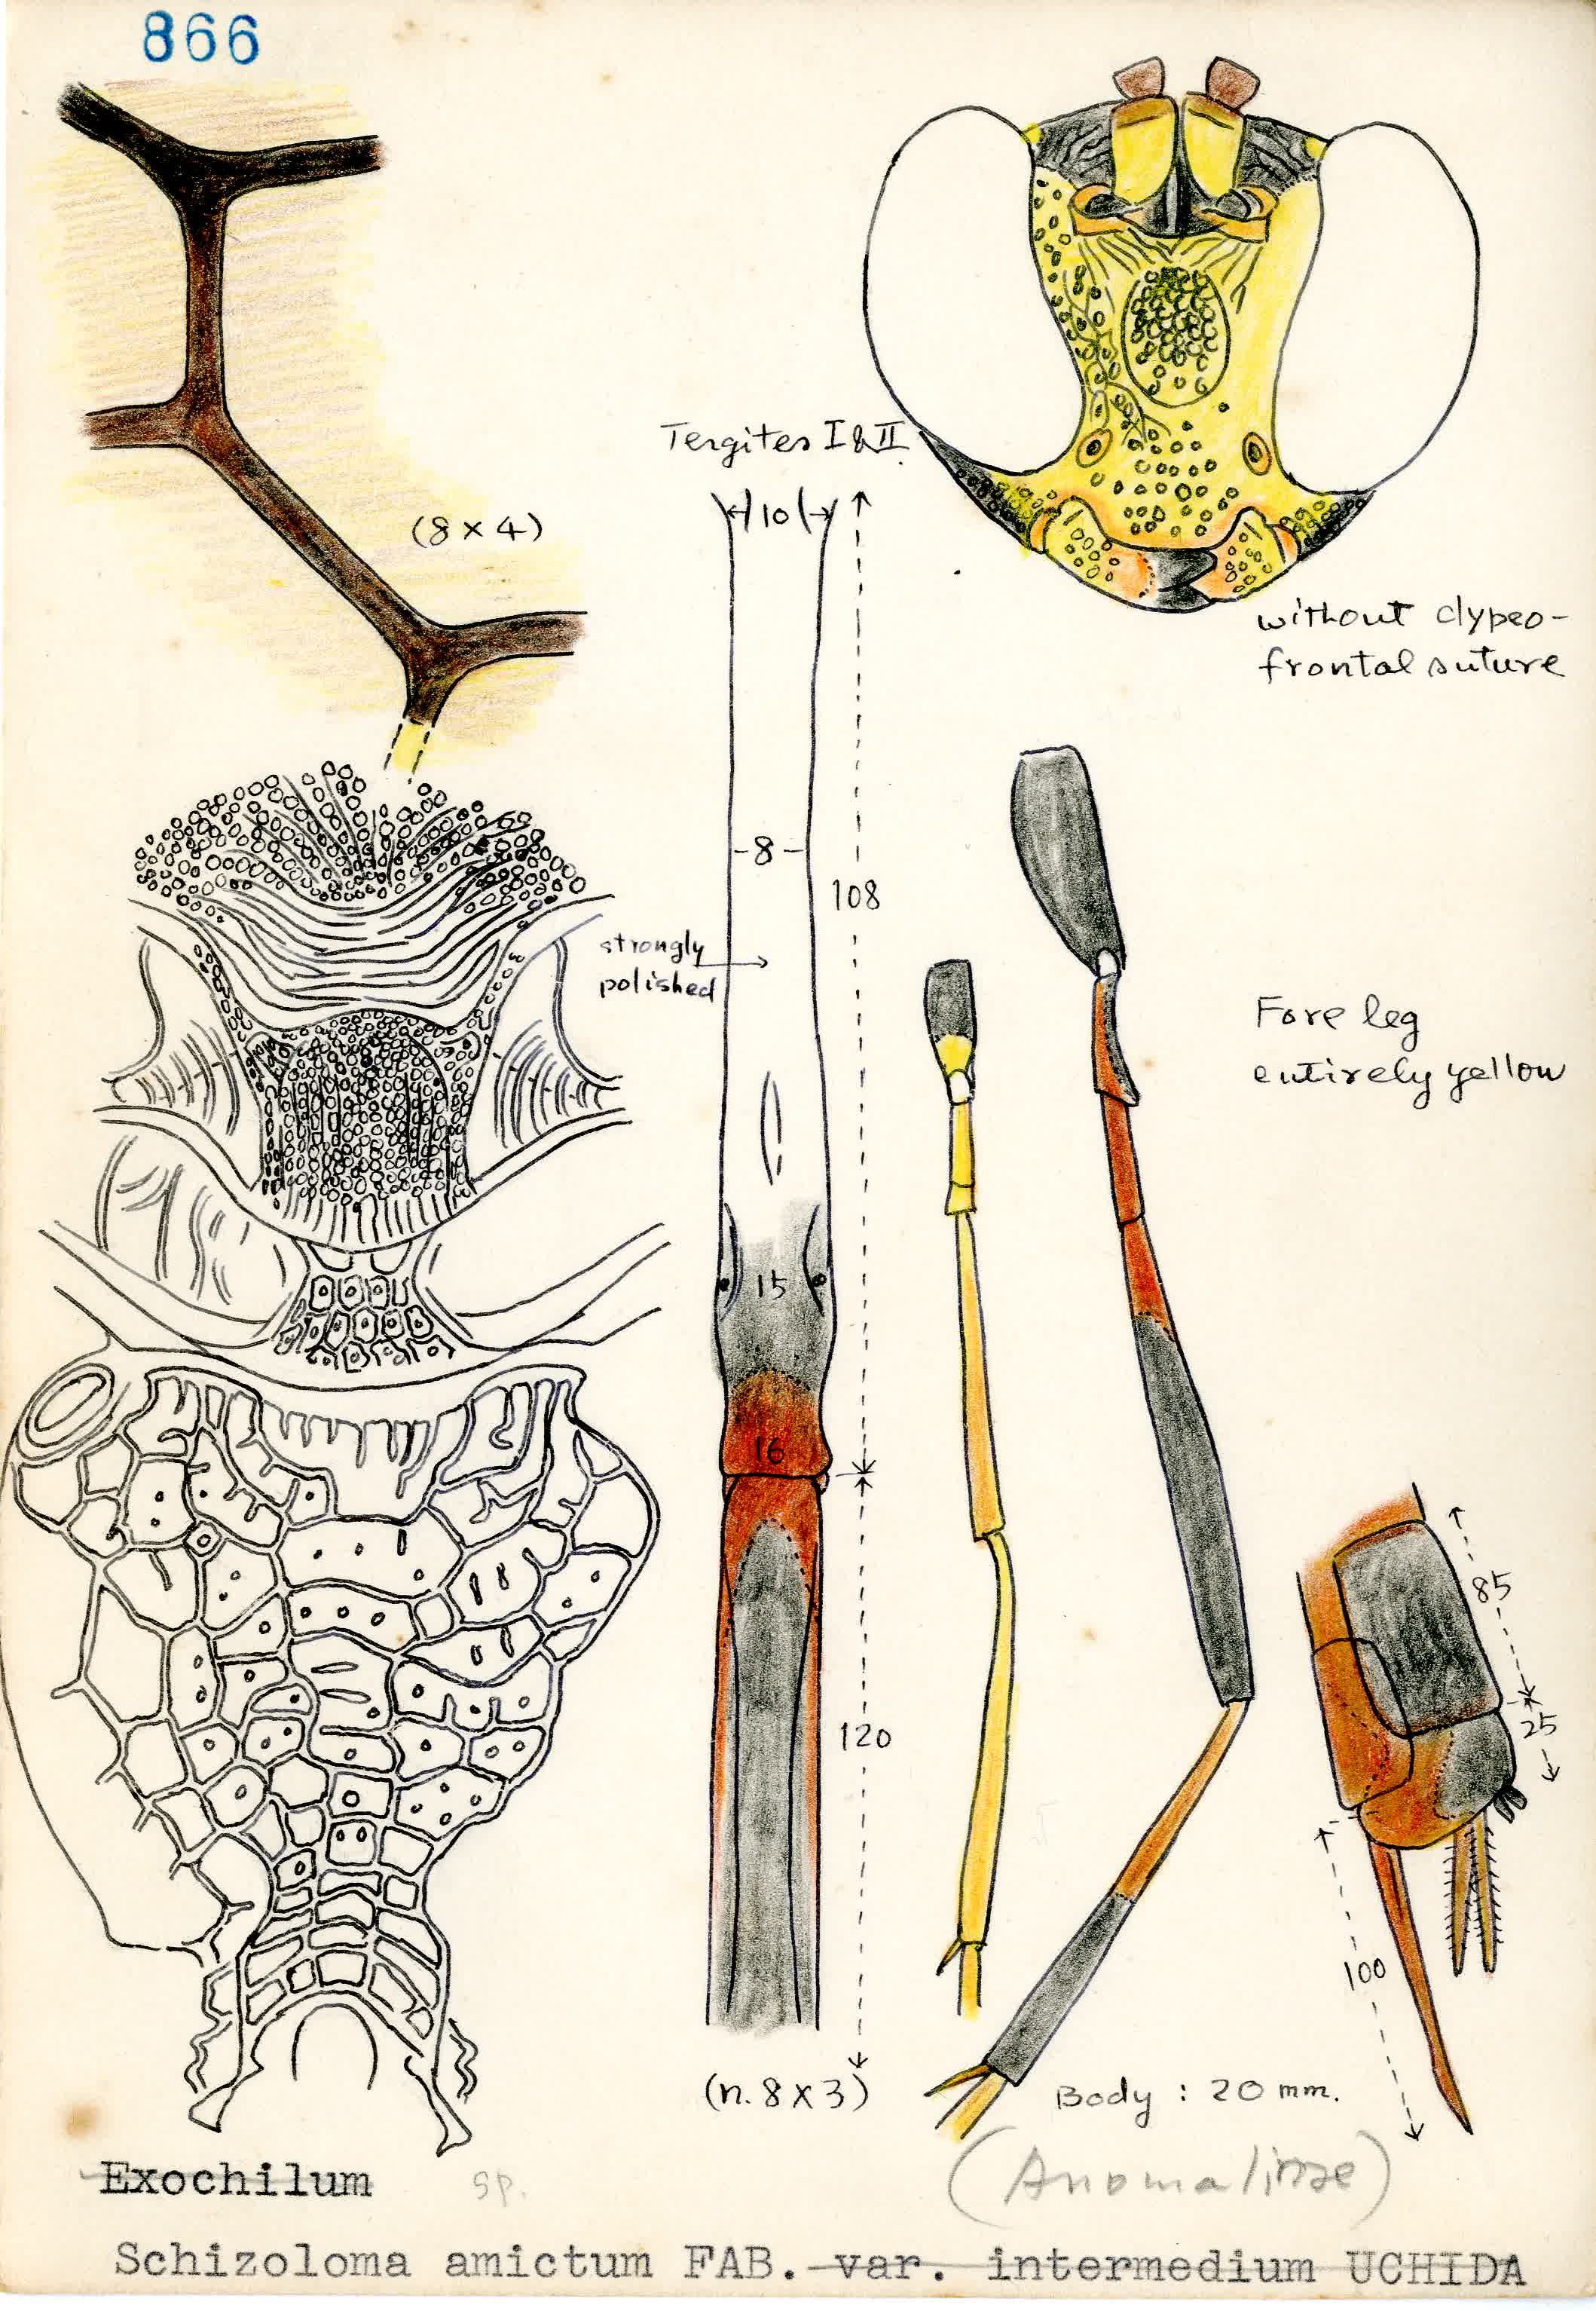 866
(8 x 4)
Tergites I & II.
10
without clypeo-
frontal suture
8
108
strongly
polished
Fore leg
entirely yellow
15
16
85
25
120
100
(n. 8 x 3)
Body : 20 mm.
(Anomalinae)
Exochilum sp.
Schizoloma amictum FAB. var. intermedium UCHIDA